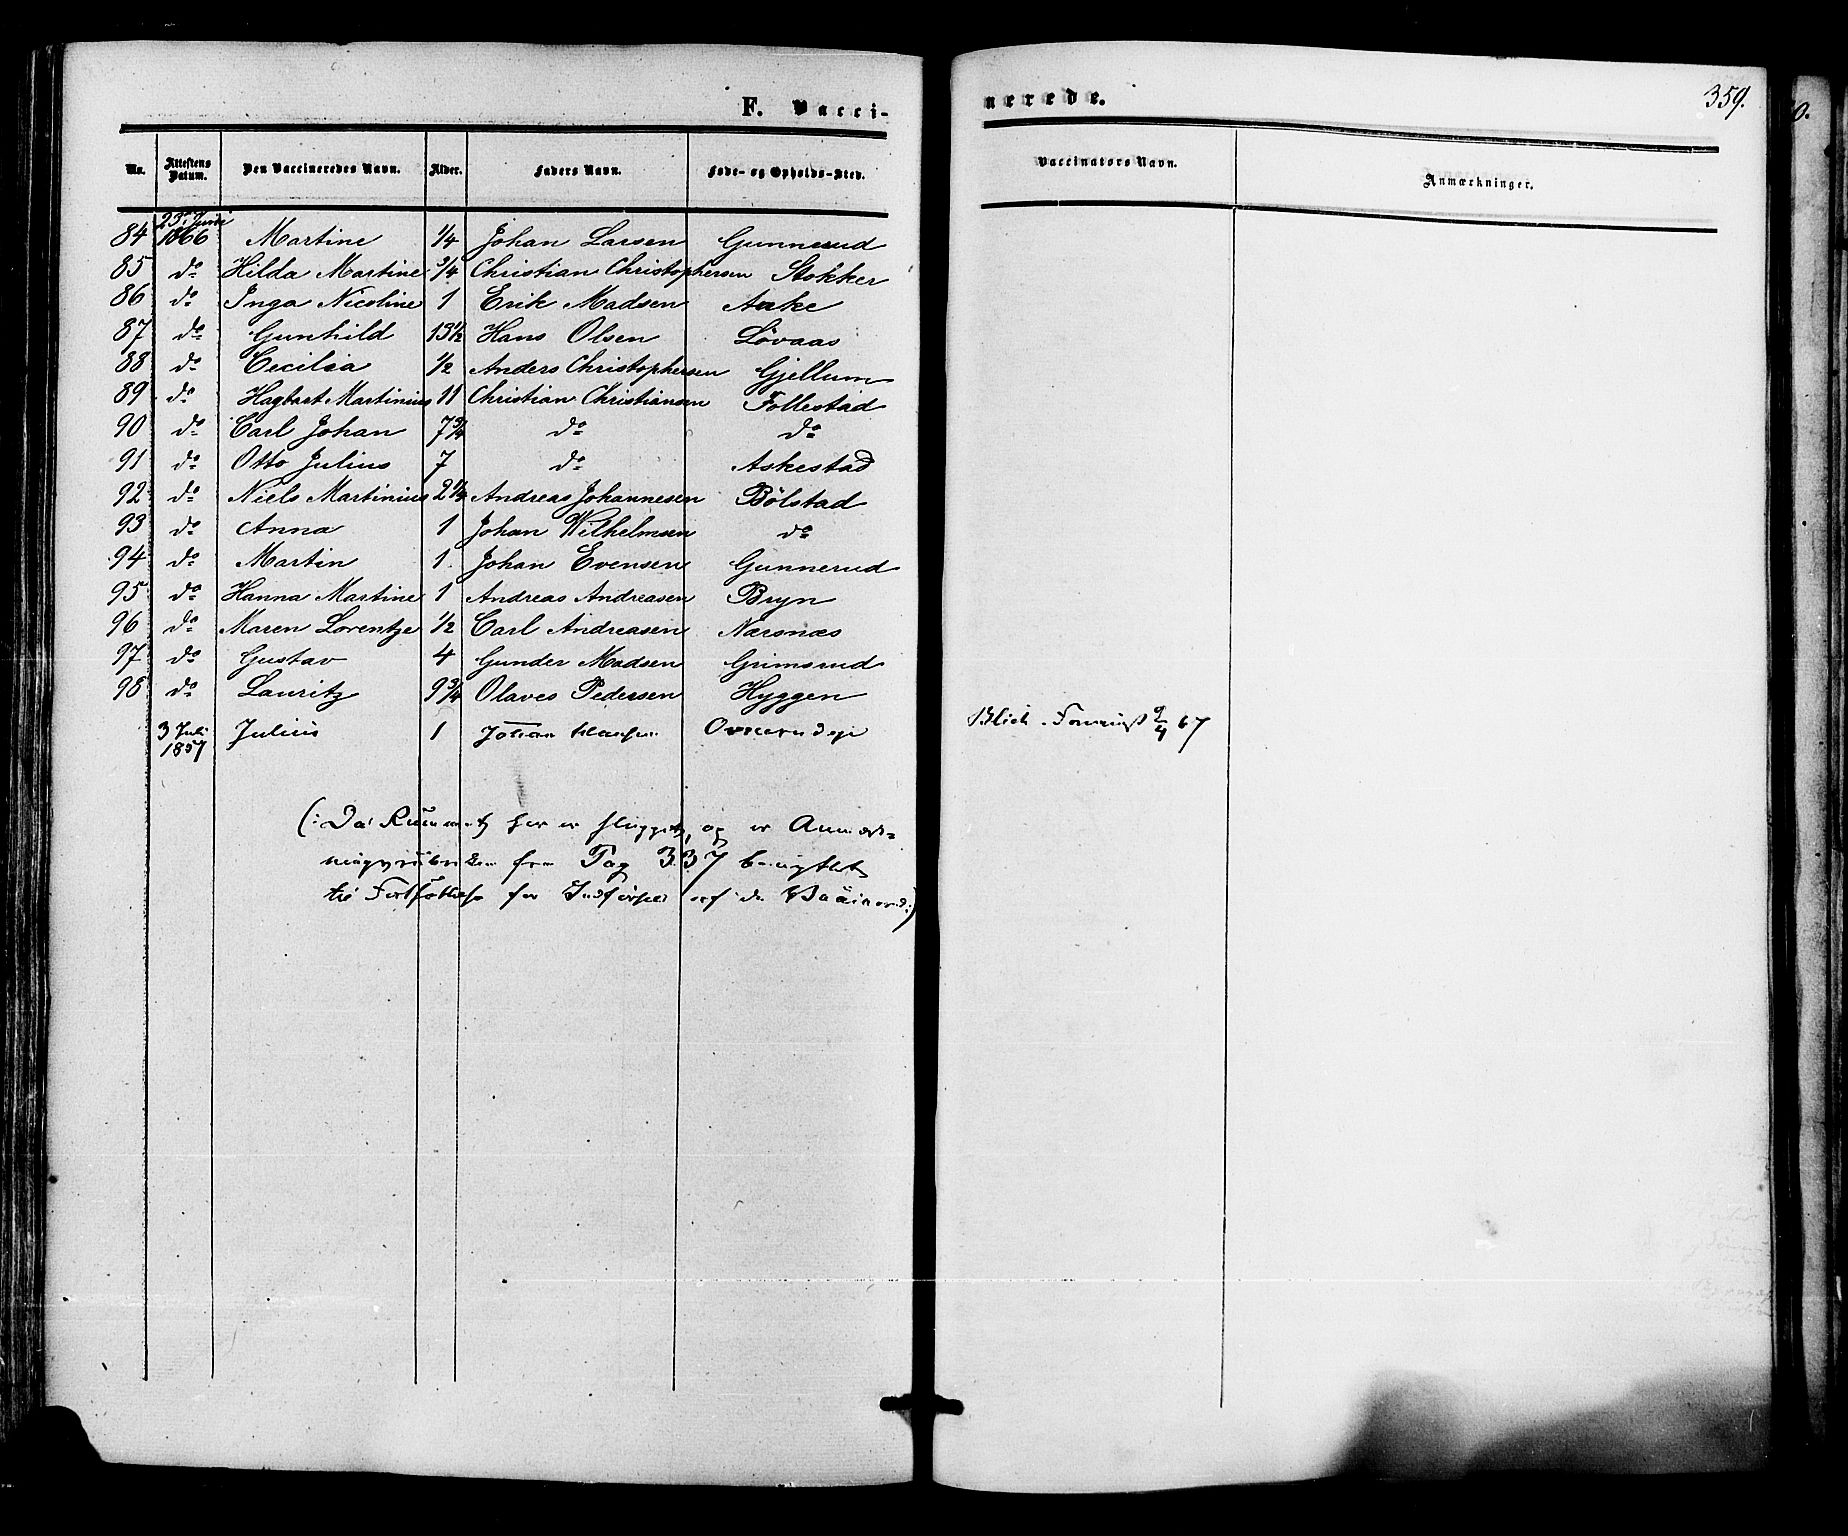 F. Vacci-
nerede.
359.
No. Attestens Datum. Den Vaccineredes Navn. Alder. Faders Navn. Føde- og Opholds-Sted. Vaccinators Navn. Anmærkninger.
84 23de Juni 1866 Martine 1/4 Johan Larsen Gunnerud
85 do Hilda Martine 3/4 Christian Christophersen Stokker
86 do Inga Nicoline 1 Erik Madsen Aake
87 do Gunhild 13 1/2 Hans Olsen Løvaas
88 do Cecilia 1/2 Anders Christophersen Gjellum
89 do Hagbart Martinius 11 Christian Christiansen Follestad
90 do Carl Johan 7 3/4 do do
91 do Otto Julius 7 do Askestad
92 do Niels Martinius 2 1/2 Andreas Johannesen Bölstad
93 do Anna 1 Johan Wilhelmsen do
94 do Martin 1. Johan Evensen Gunnerud
95 do Hanna Martine 1 Andreas Andreasen Bryn
96 do Maren Lorentze 1/2 Carl Andreasen Nærsnæs
97 do Gustav 4 Gunder Madsen Grimsrud
98 do Lauritz 9 3/4 Olaves Pedersen Hyggen
3 Juli 1857 Julius 1 Johan Hansen 9/4 67
(: Da Rummet her er , og er Anmærk-
ningsrubrikken fra Pag 337 benyttet
til Fortsættelse for Indførsel af de :)